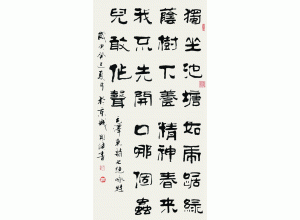 獨坐池塘如虎踞綠
蔭樹下養精神春來
我不先開口哪個蟲
兒敢作聲
毛澤東詩七絕咏蛙
癸巳夏月於京城書